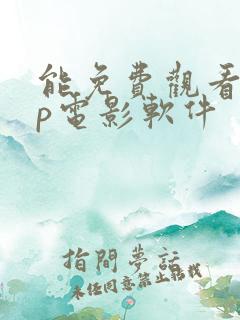 能免費觀看
p電影軟件
指間夢話
未经同意禁止转载